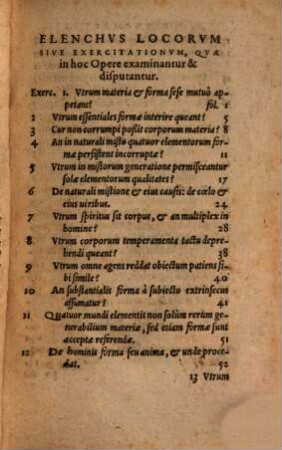 ELENCHVS LOCORVM
SIVE EXERCITATIONVM, QVÆ
in hoc Opere examinantur &
disputantur.
Exerc. 1. Vtrum materia & forma sese mutuò ap-
petant? fol. 1
2 Vtrum essentiales formæ interire queant? 5
3 Cur non corrumpi possit corporum materia? 8
4 An in naturali misto quatuor elementorum for-
mæ persistent incorruptæ? 11
5 Vtrum in mistorum generatione permisceantur
solæ elementorum qualitates? 17
6 De naturali mistione & eius causis: de cœlo &
eius viribus. 24
7 Vtrum spiritus sit corpus, & an multiplex in
homine? 28
8 Vtrum corporum temperamenta tactu depre-
hendi queant? 38
9 Vtrum omne agens reddat obiectum patiens si-
bi simile? 40
10 An substantialis forma à subiecto extrinsecus
assumatur? 41
11 Quatuor mundi elementis non solùm rerum ge-
nerabilium materiæ, sed etiam formæ sunt
acceptæ referendæ. 51
12 De hominis forma seu anima, & unde proce-
dat. 52
13 Vtrum